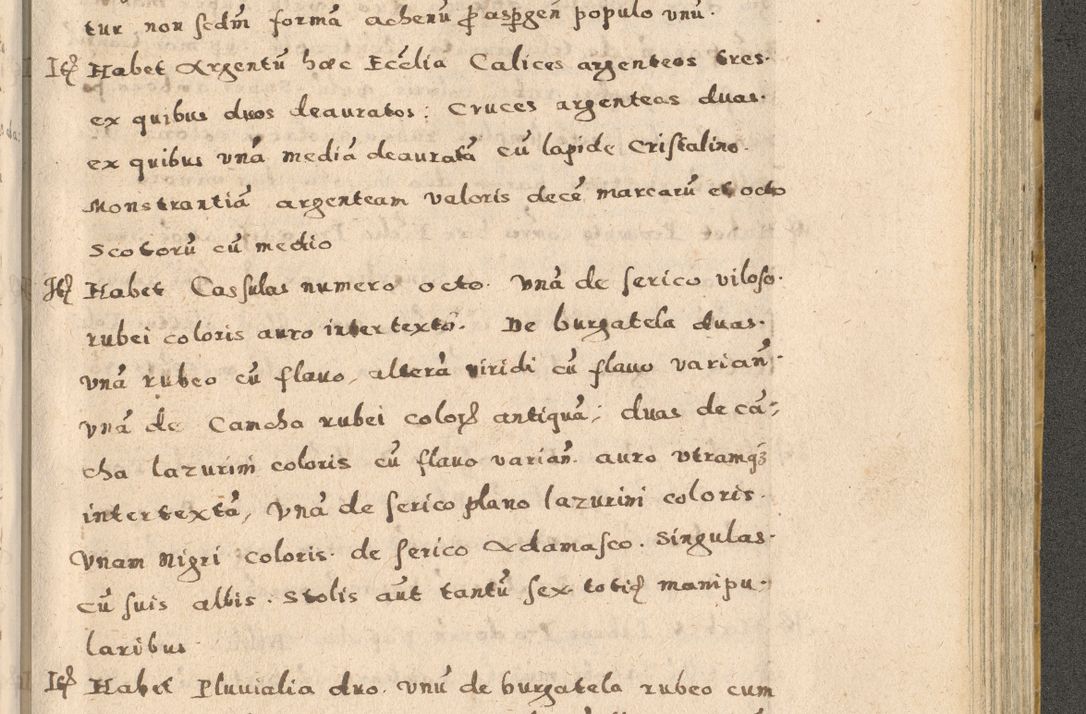 tur non scdm̄ formā achenū ꝑ asꝑgen̄ populo unū.
Itē Habet Argentū hæc Eccl̄ia Calices argenteos tres.
ex quibus duos deauratos; Cruces argenteas duas.
ex quibus unā mediā deauratā cū lapide Cristalino.
Monstrantiā argenteam valoris decē marcarū et octo
scotorū cū medio
Itē Habet Cassulas numero octo. Unā de serico viloso.
rubei coloris auro intertextō. De burgatela duas.
unā rubeo cū flauo, alterā viridi cū flauo varian̄.
unā de Camcha rubei colorꝭ antiquā; duas de cā-
cha lazurini coloris cū flauo varian̄. auro utramqꝫ
intertextā, Unā de serico plano lazurini coloris.
Unam Nigri coloris. de serico Adamasco. Singulas.
cū suis albis. Stolis aūt tantū sex totiꝺ manipu-
laribus
Itē Habet Pluuialia duo. Unū de burgatela rubeo cum